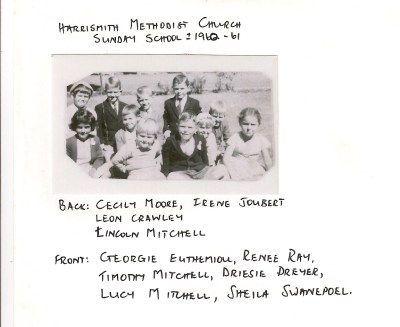 HARRISMITH METHODIST CHURCH
SUNDAY SCHOOL ± 1960-61
BACK: CECILY MOORE, IRENE JOUBERT
LEON CRAWLEY
LINCOLN MITCHELL
FRONT: GEORGIE EUTHEMIOU, RENEE RAY,
TIMOTHY MITCHELL, DRIESIE DREYER,
LUCY MITCHELL, SHEILA SWANEPOEL.